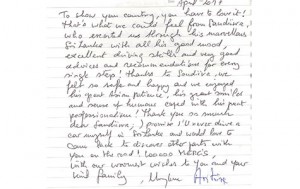 April 2019
To show your country, you have to love it!
That's what we could feel from Sandiwa,
who escorted us through his marvellous
Sri Lanka with all his good mood,
excellent driving skills and very good
advices and recommendations for every
single step! Thanks to Sandiwa, we
felt so safe and happy and we enjoyed
his great being patience, his great smile
and sense of humour coped with his great
professionalism! Thank you so much
dear Sandiwa, I promise I'll never drive a
car myself in Sri Lanka and would love to
come back to discover other parts with
you on the road! 100000 MERCIS
With our warmest wishes to you and your
kind family